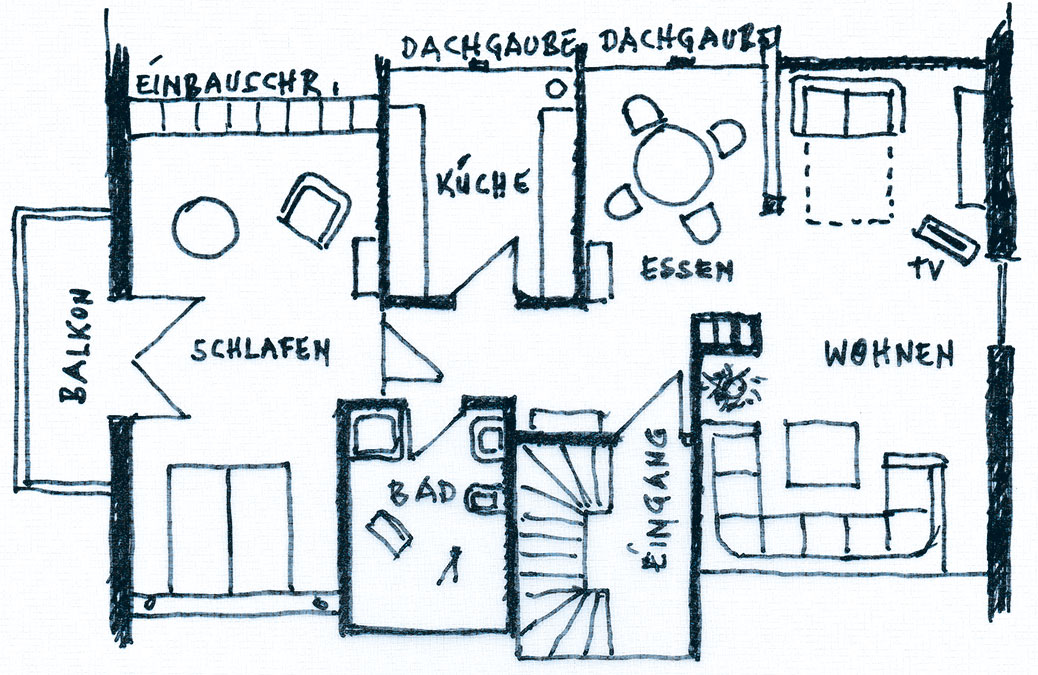 DACHGAUBE DACHGAUBE
EINBAUSCHR.
KÜCHE
ESSEN
TV
BALKON
SCHLAFEN
WOHNEN
BAD
EINGANG